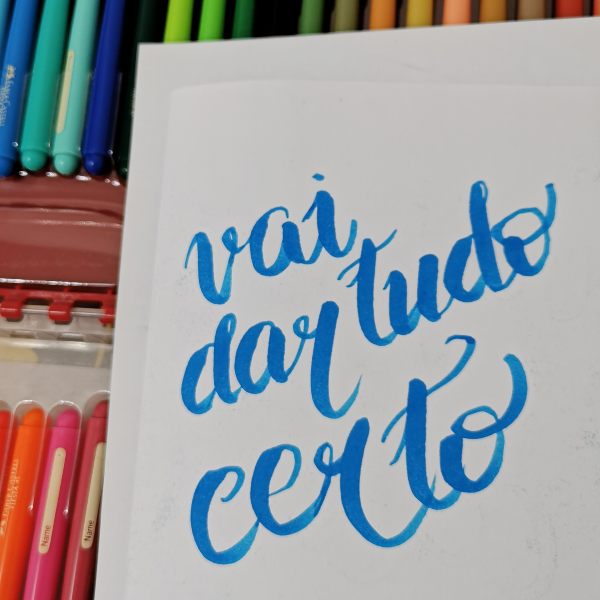 vai
dar tudo
certo
Name
Name